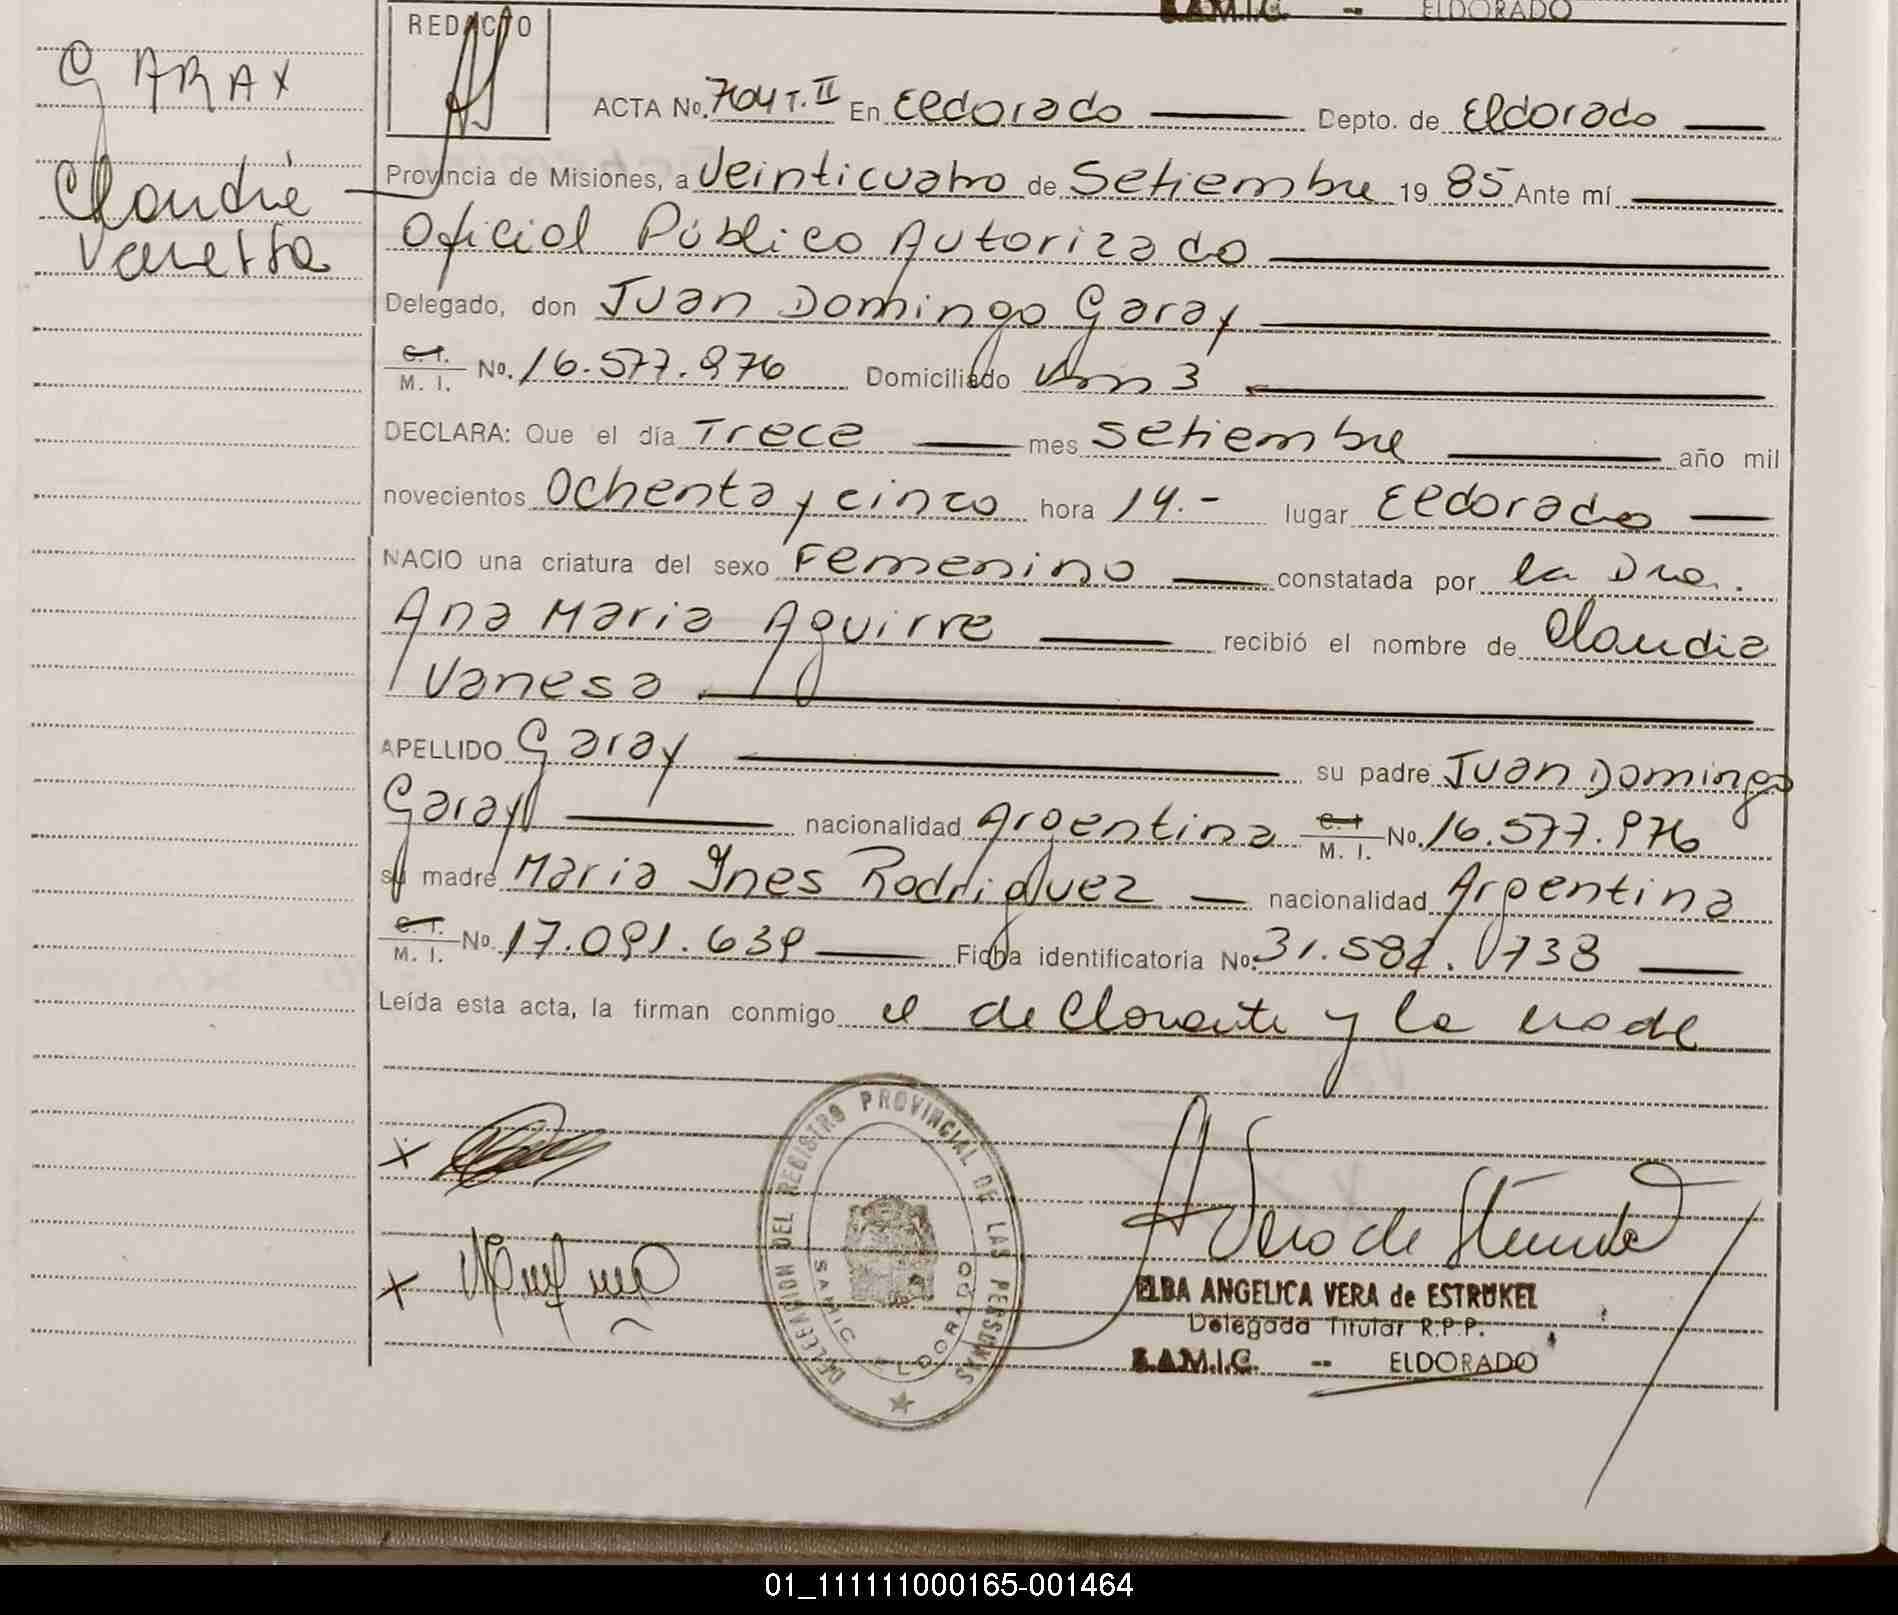 S.A.M.I.C. -- ELDORADO
REDACTO
GARAY
Claudia
Vanessa
ACTA No. 704 T. II En Eldorado Depto. de Eldorado
Provincia de Misiones, a Veinticuatro de Setiembre 1985 Ante mí
Oficial Público Autorizado
Delegado, don Juan Domingo Garay
C. I. M. I. No. 16.577.976 Domiciliado Km 3
DECLARA: Que el día Trece mes setiembre año mil
novecientos Ochenta y cinco hora 14.- lugar Eldorado
NACIO una criatura del sexo Femenino constatada por la Dra.
Ana Maria Aguirre recibió el nombre de Claudia
Vanesa
APELLIDO Garay su padre Juan Domingo
Garay nacionalidad Argentina C. I M. I. No. 16.577.976
su madre Maria Ines Rodriguez nacionalidad Argentina
C. I. M. I. No. 17.091.639 Ficha identificatoria No. 31.582.738
Leída esta acta, la firman conmigo el declarante y la madre
DELEGACION DEL REGISTRO PROVINCIAL DE LAS PERSONAS
SAMIC ELDORADO
ELBA ANGELICA VERA de ESTRUKEL
Delegada Titular R.P.P.
S.A.M.I.C. -- ELDORADO
01_111111000165-001464